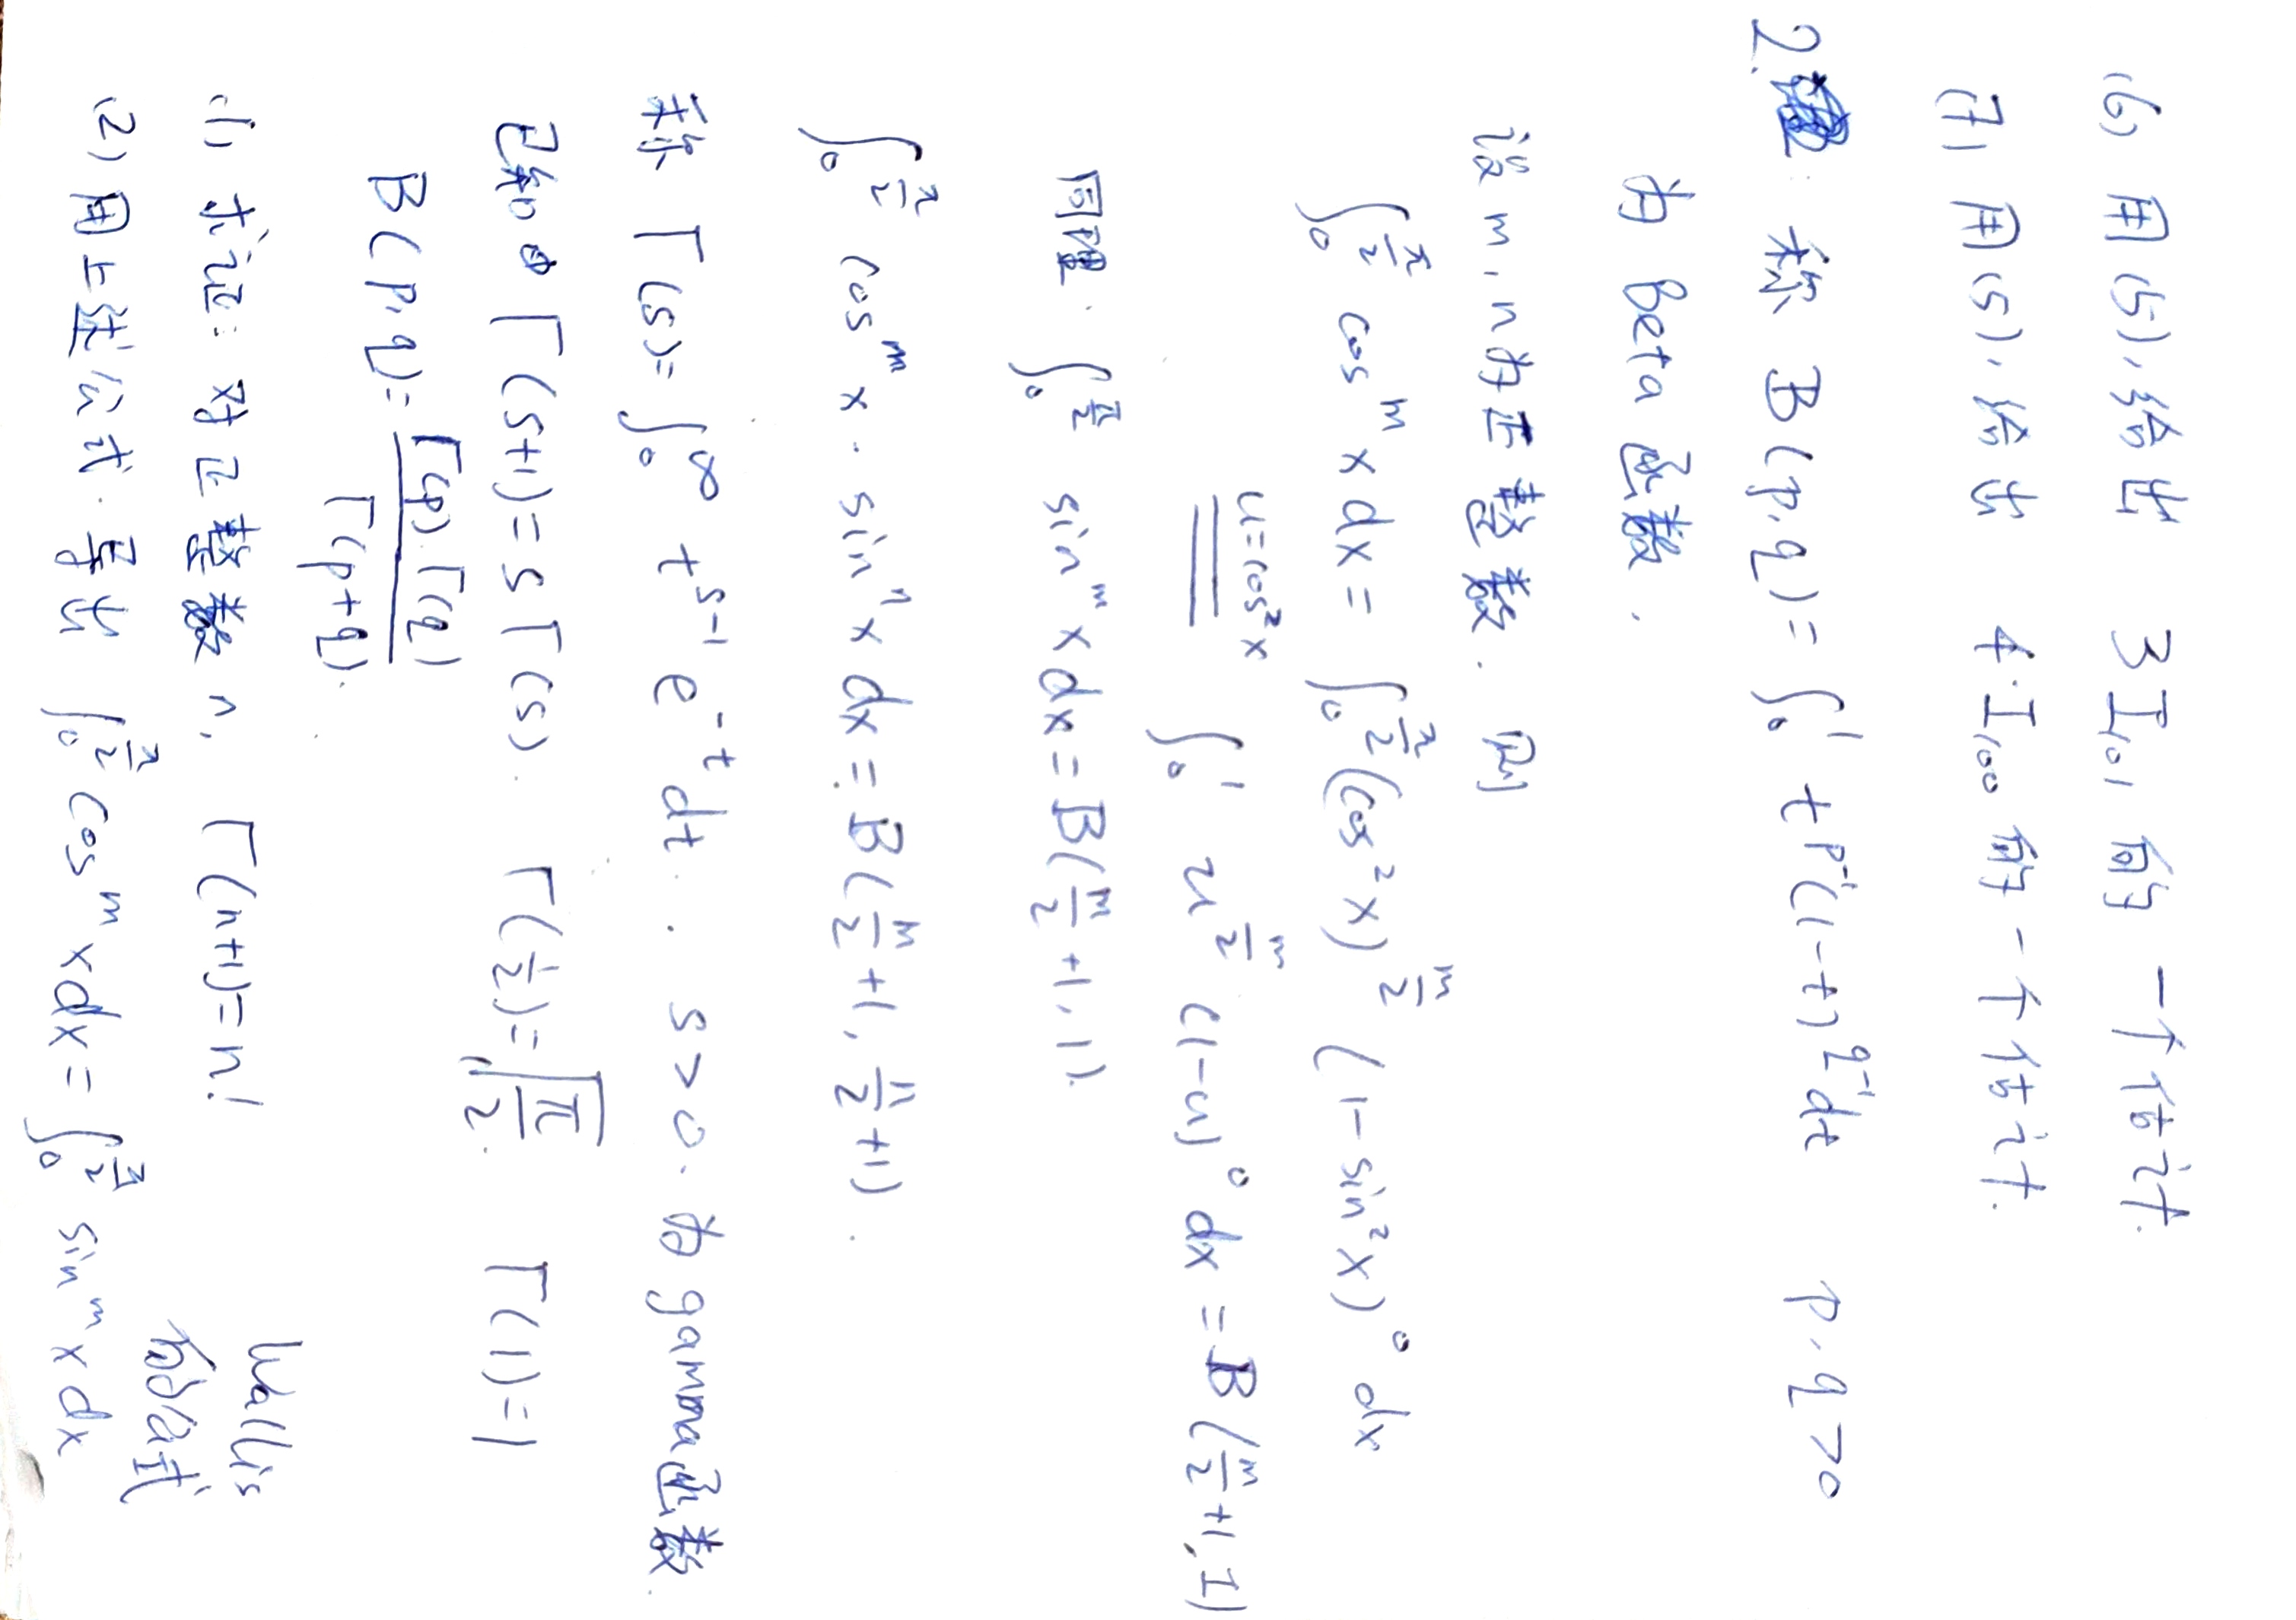 (6) 用(5),给出 3I₁₀₁ 的一个估计.
(7) 用(5),给出 4·I₁₀₀ 的一个估计.
2. 称 B(p,q)=∫₀¹ t^{p-1}(1-t)^{q-1}dt p,q>0
为 Beta 函数.
设 m,n为正整数. 则
∫₀^{π/2} cos^m x dx = ∫₀^{π/2}(cos²x)^{m/2} (1-sin²x)⁰ dx
u=cos²x ∫₀¹ u^{m/2} (1-u)⁰ dx = B(m/2+1,1)
同理. ∫₀^{π/2} sin^m x dx = B(m/2+1,1).
∫₀^{π/2} cos^m x · sin^n x dx = B(m/2+1, n/2+1).
称 Γ(s)=∫₀^∞ t^{s-1} e^{-t} dt. s>0. 为 gamma函数.
已知 Γ(s+1)=sΓ(s). Γ(1/2)=√π/2. Γ(1)=1
B(p,q)=Γ(p)Γ(q)/Γ(p+q).
(1) 求证: 对正整数 n, Γ(n+1)=n!
(2) 用上述公式. 导出 ∫₀^{π/2} cos^m x dx = ∫₀^{π/2} sin^m x dx
Wallis
公式